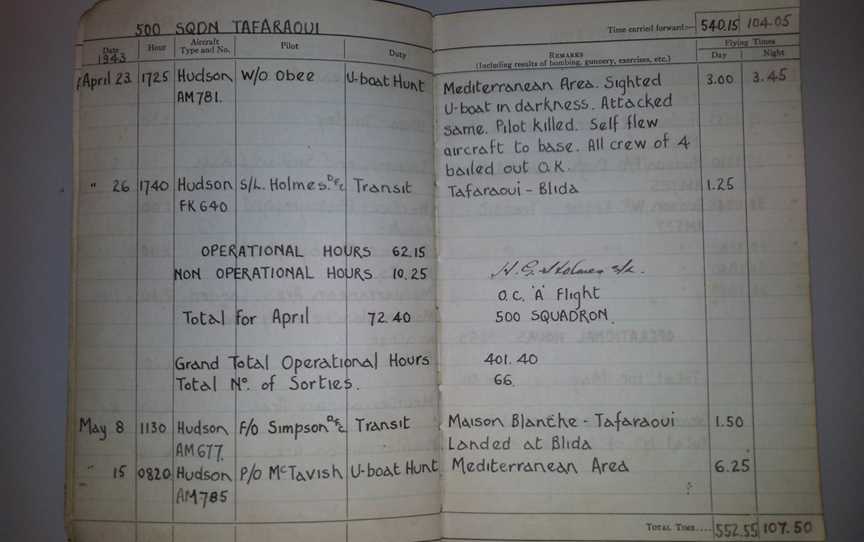 500 SQDN TAFARAOUI
Time carried forward:— 540.15 104.05
Date Hour Aircraft Type and No. Pilot Duty Remarks (Including results of bombing, gunnery, exercises, etc.) Flying Times Day Night
1943
April 23 1725 Hudson W/O Obee U-boat Hunt Mediterranean Area. Sighted 3.00 3.45
AM781. U-boat in darkness. Attacked
same. Pilot killed. Self flew
aircraft to base. All crew of 4
bailed out O.K.
" 26 1740 Hudson S/L. Holmes. DFC Transit Tafaraoui - Blida 1.25
FK640
OPERATIONAL HOURS 62.15
NON OPERATIONAL HOURS 10.25 H. G. Holmes S/L.
O.C. 'A' Flight
Total for April 72.40 500 SQUADRON.
Grand Total Operational Hours 401.40
Total No. of Sorties. 66.
May 8 1130 Hudson F/O Simpson DFC Transit Maison Blanche - Tafaraoui 1.50
AM677. Landed at Blida
" 15 0820 Hudson P/O McTavish U-boat Hunt Mediterranean Area 6.25
AM785
Total Time.... 552.55 107.50